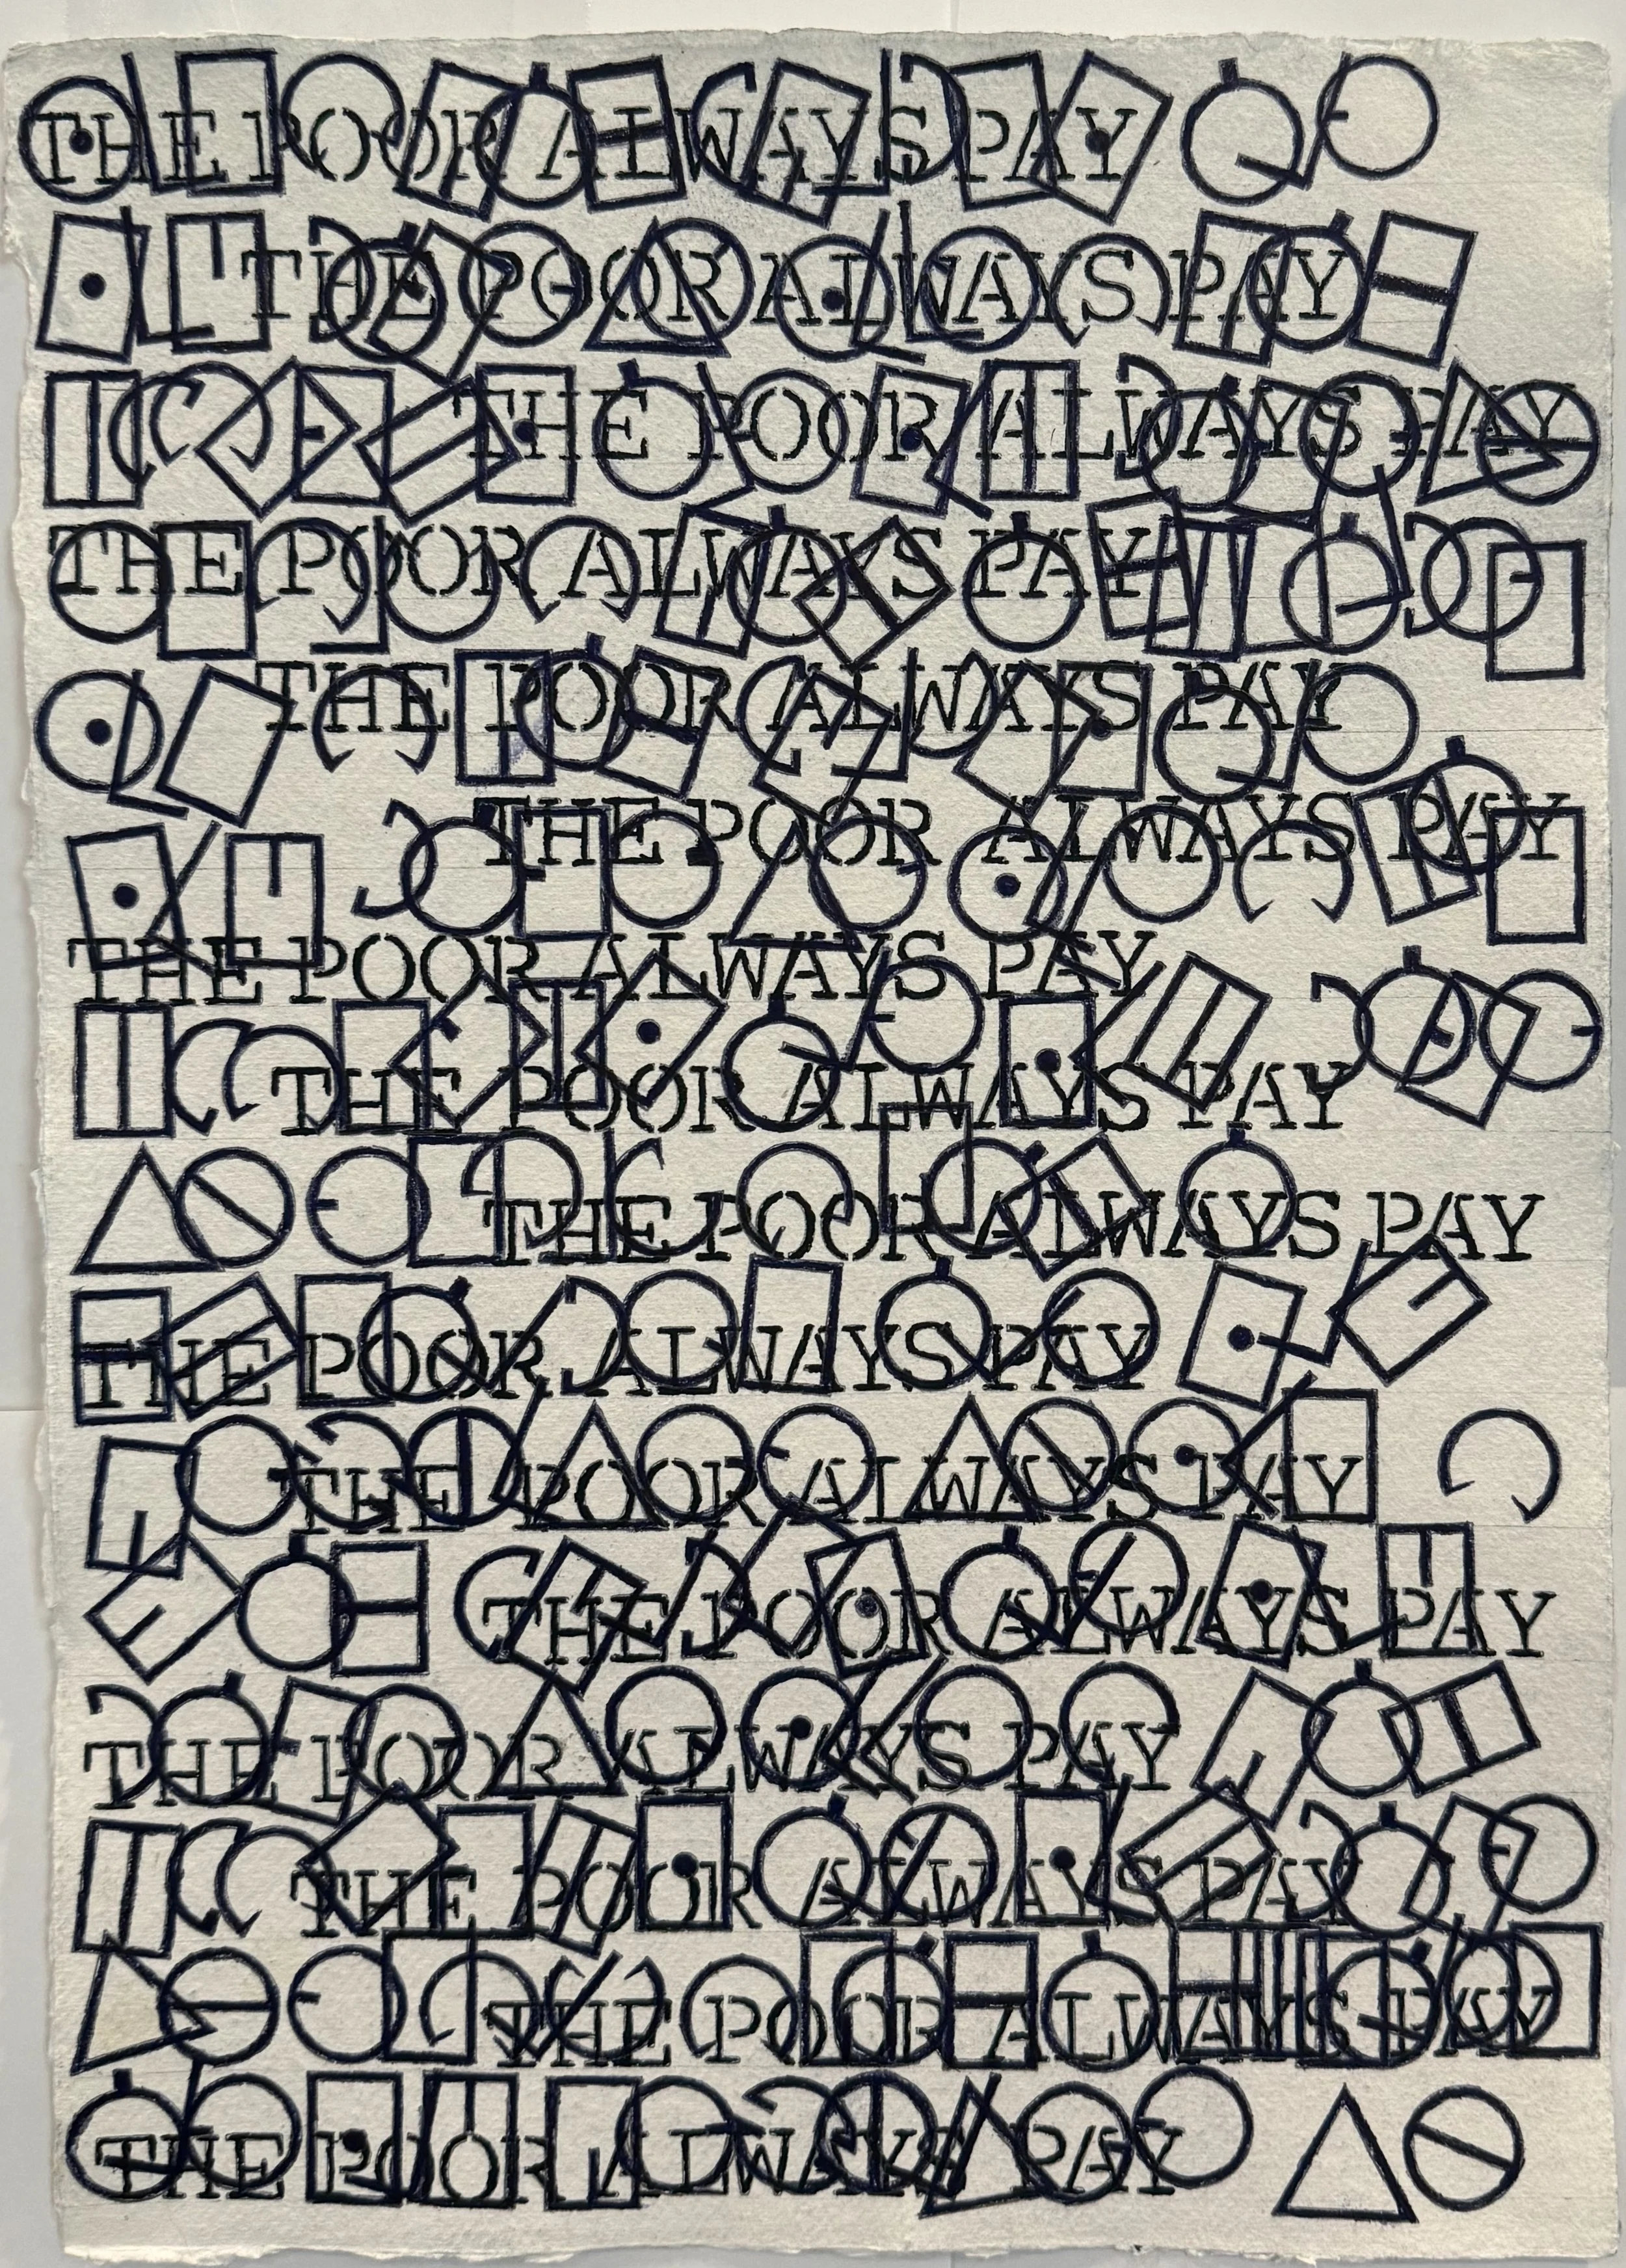 THE POOR ALWAYS PAY
THE POOR ALWAYS PAY
THE POOR ALWAYS PAY
THE POOR ALWAYS PAY
THE POOR ALWAYS PAY
THE POOR ALWAYS PAY
THE POOR ALWAYS PAY
THE POOR ALWAYS PAY
THE POOR ALWAYS PAY
THE POOR ALWAYS PAY
THE POOR ALWAYS PAY
THE POOR ALWAYS PAY
THE POOR ALWAYS PAY
THE POOR ALWAYS PAY
THE POOR ALWAYS PAY
THE POOR ALWAYS PAY